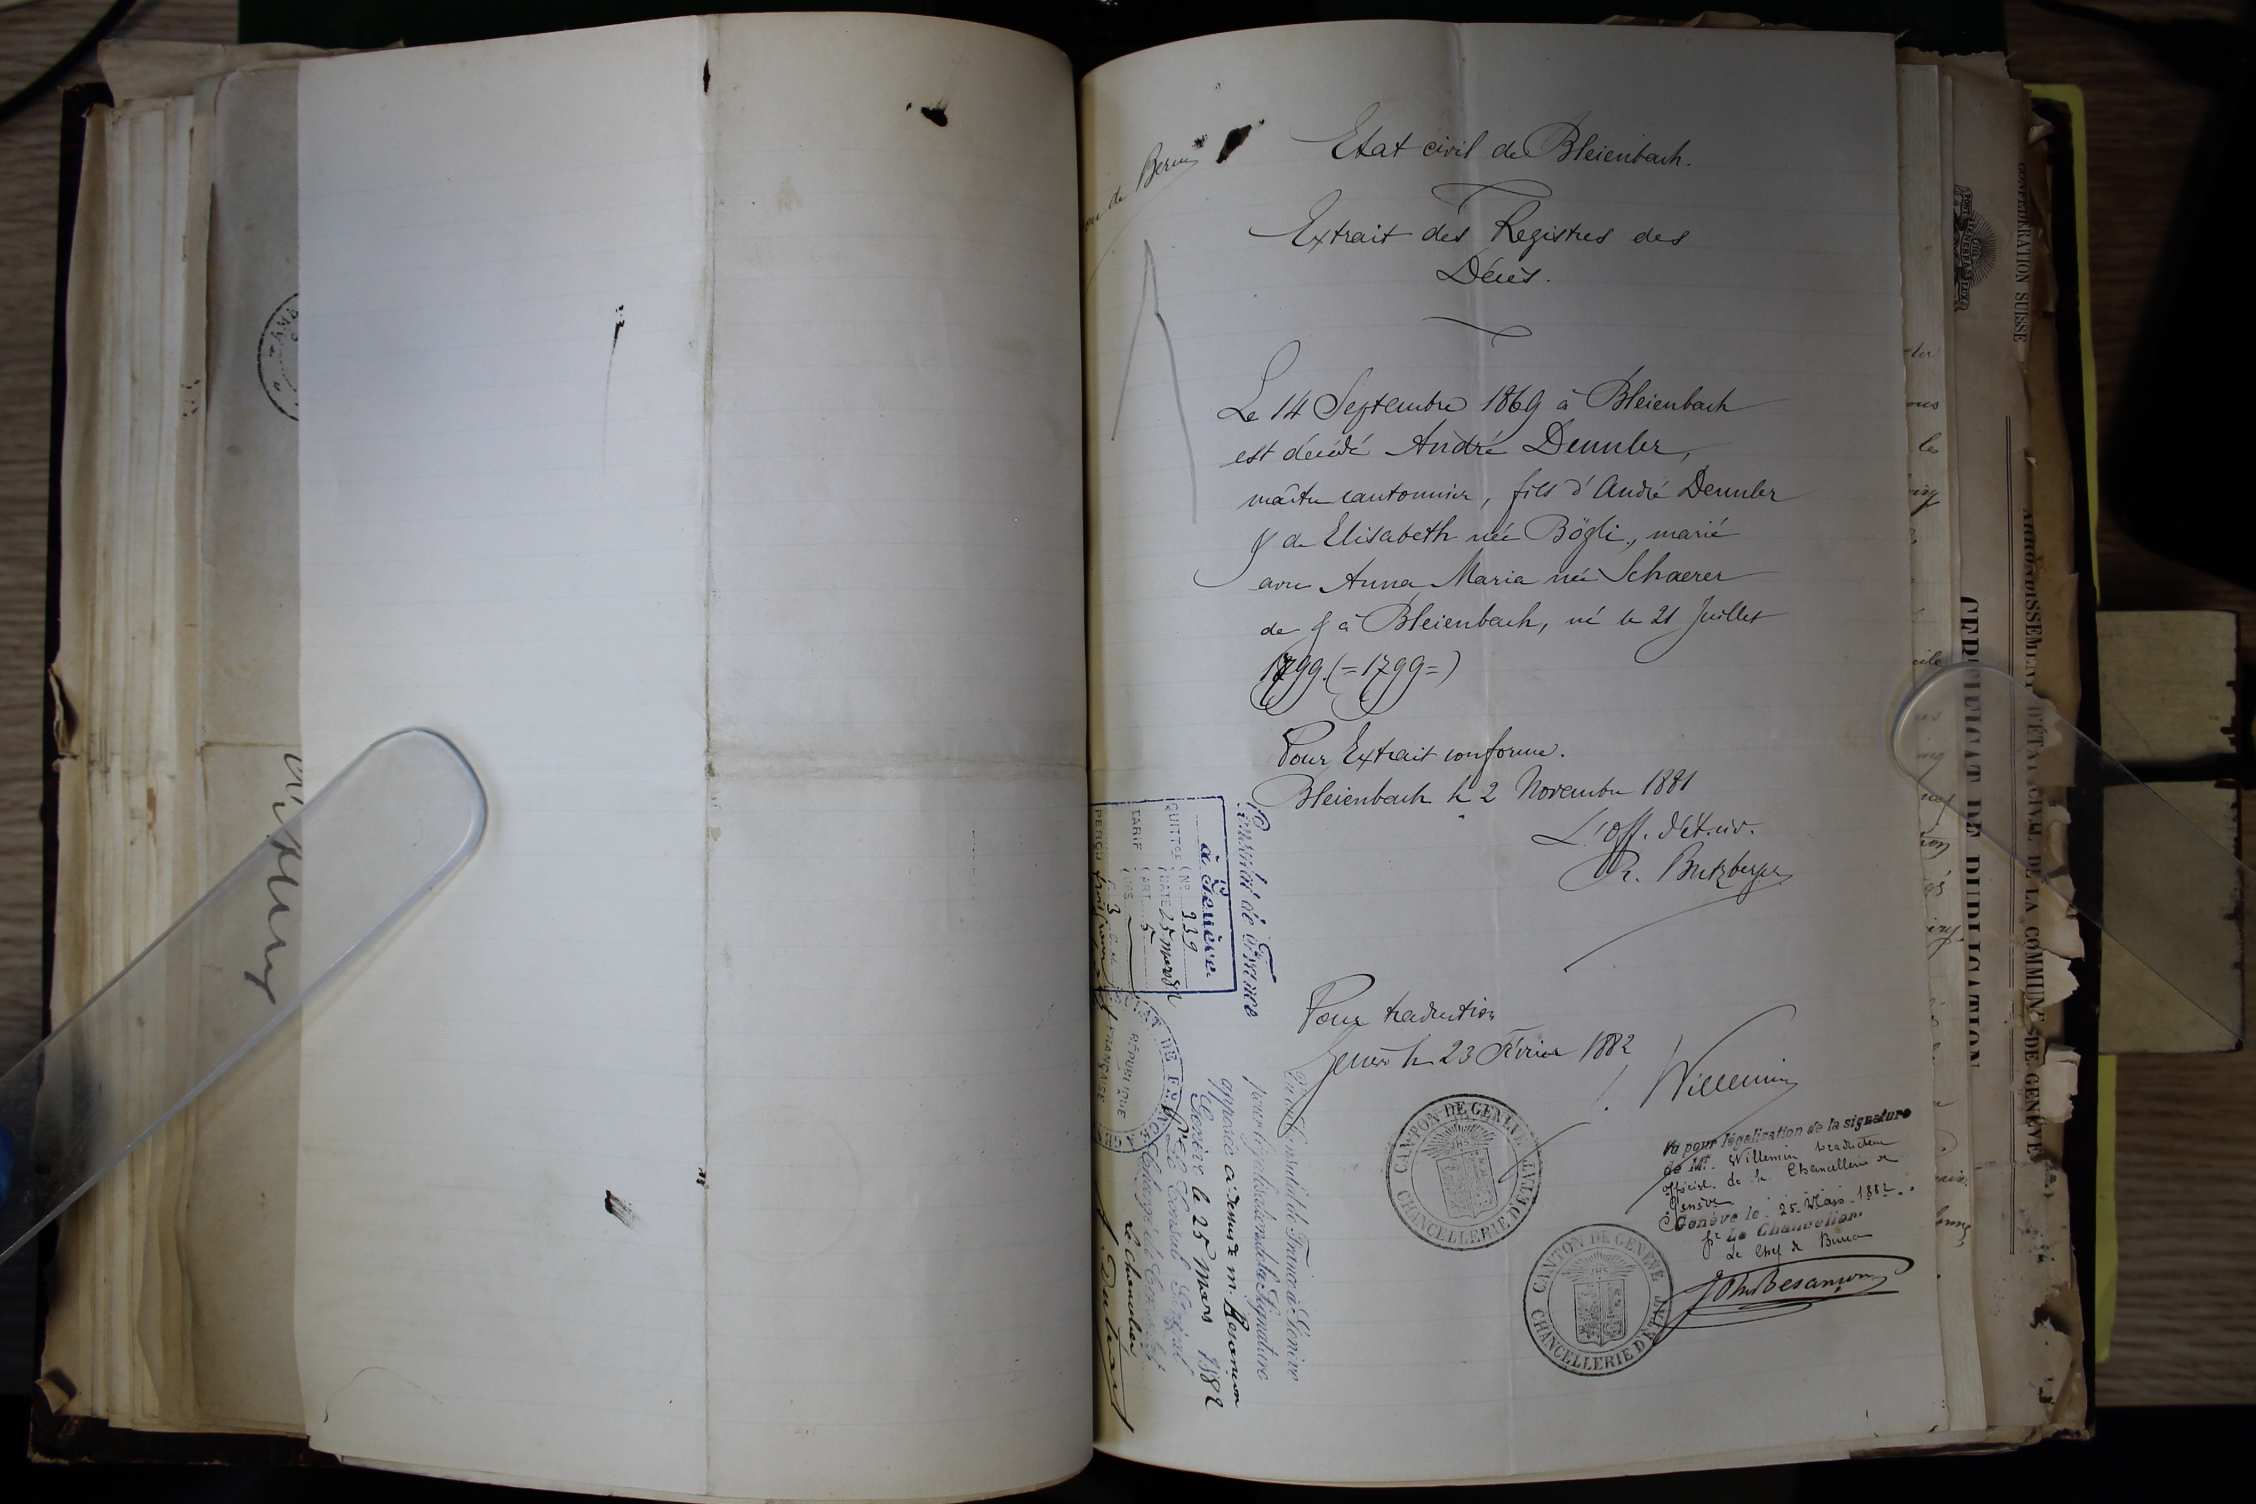 de Berne
Etat civil de Bleienbach.
Extrait des Registres des
Décès.
Le 14 Septembre 1869 à Bleienbach
est décédé André Dennler,
maître cantonnier, fils d'André Dennler
& de Elisabeth née Bögli, marié
avec Anna Maria née Schaerer
de & à Bleienbach, né le 21 Juillet
1799. (=1799=)
Pour Extrait conforme.
Bleienbach le 2 Novembre 1881
L'Off. d'ét. civ.
R. Butzberger
Pour traduction
Genève le 23 Février 1882
Willemin
CANTON DE GENEVE
CHANCELLERIE D'ETAT
Vu pour légalisation de la signature
de Mr. Willemin traducteur
officiel de la Chancellerie de
Genève
Genève le 25 Mars 1882
pr Le Chancelier
Le Chef de Bureau
John Besançon
CANTON DE GENEVE
CHANCELLERIE D'ETAT
Consulat de France
à Genève
QUITTCE No 939
DATE 25 mars 82
TARIF ART. 5
PERÇU
RÉPUBLIQUE FRANÇAISE
Vu au Consulat de France à Genève
pour légalisation de la Signature
apposée ci-dessus de M. Besançon
Genève le 25 Mars 1882
Le Consul Général
Le Chancelier
CONFÉDÉRATION SUISSE
ARRONDISSEMENT D'ÉTAT CIVIL DE LA COMMUNE DE GENÈVE
CERTIFICAT DE PUBLICATION